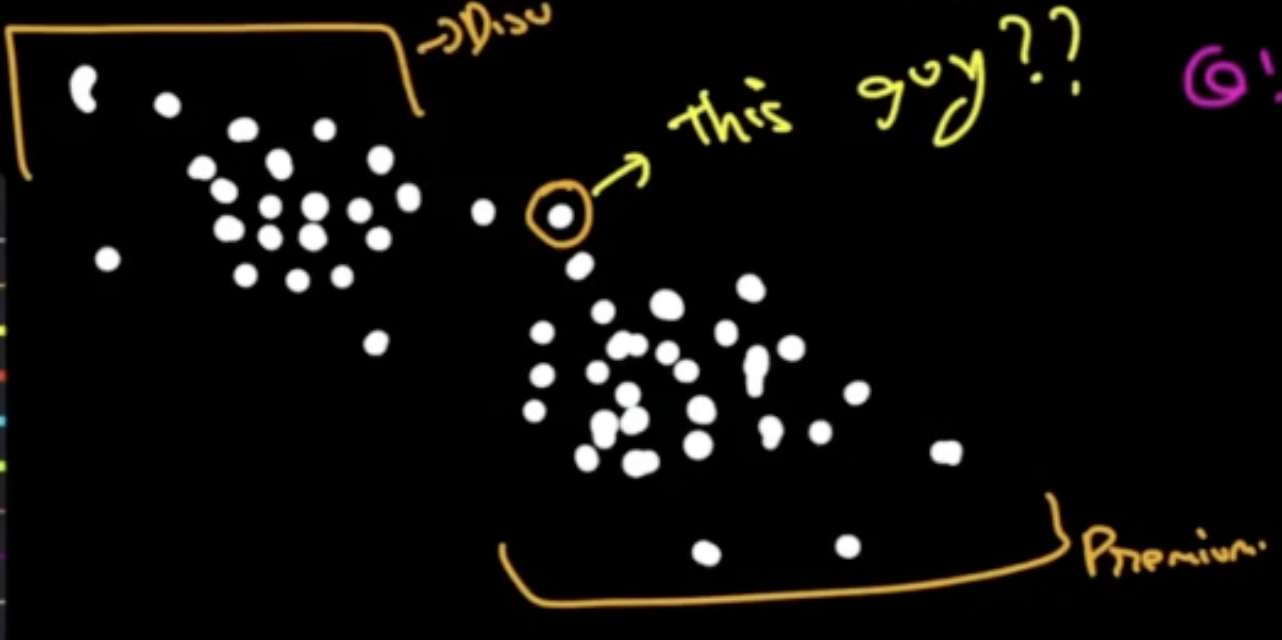 →Disu
this guy??
Premium.